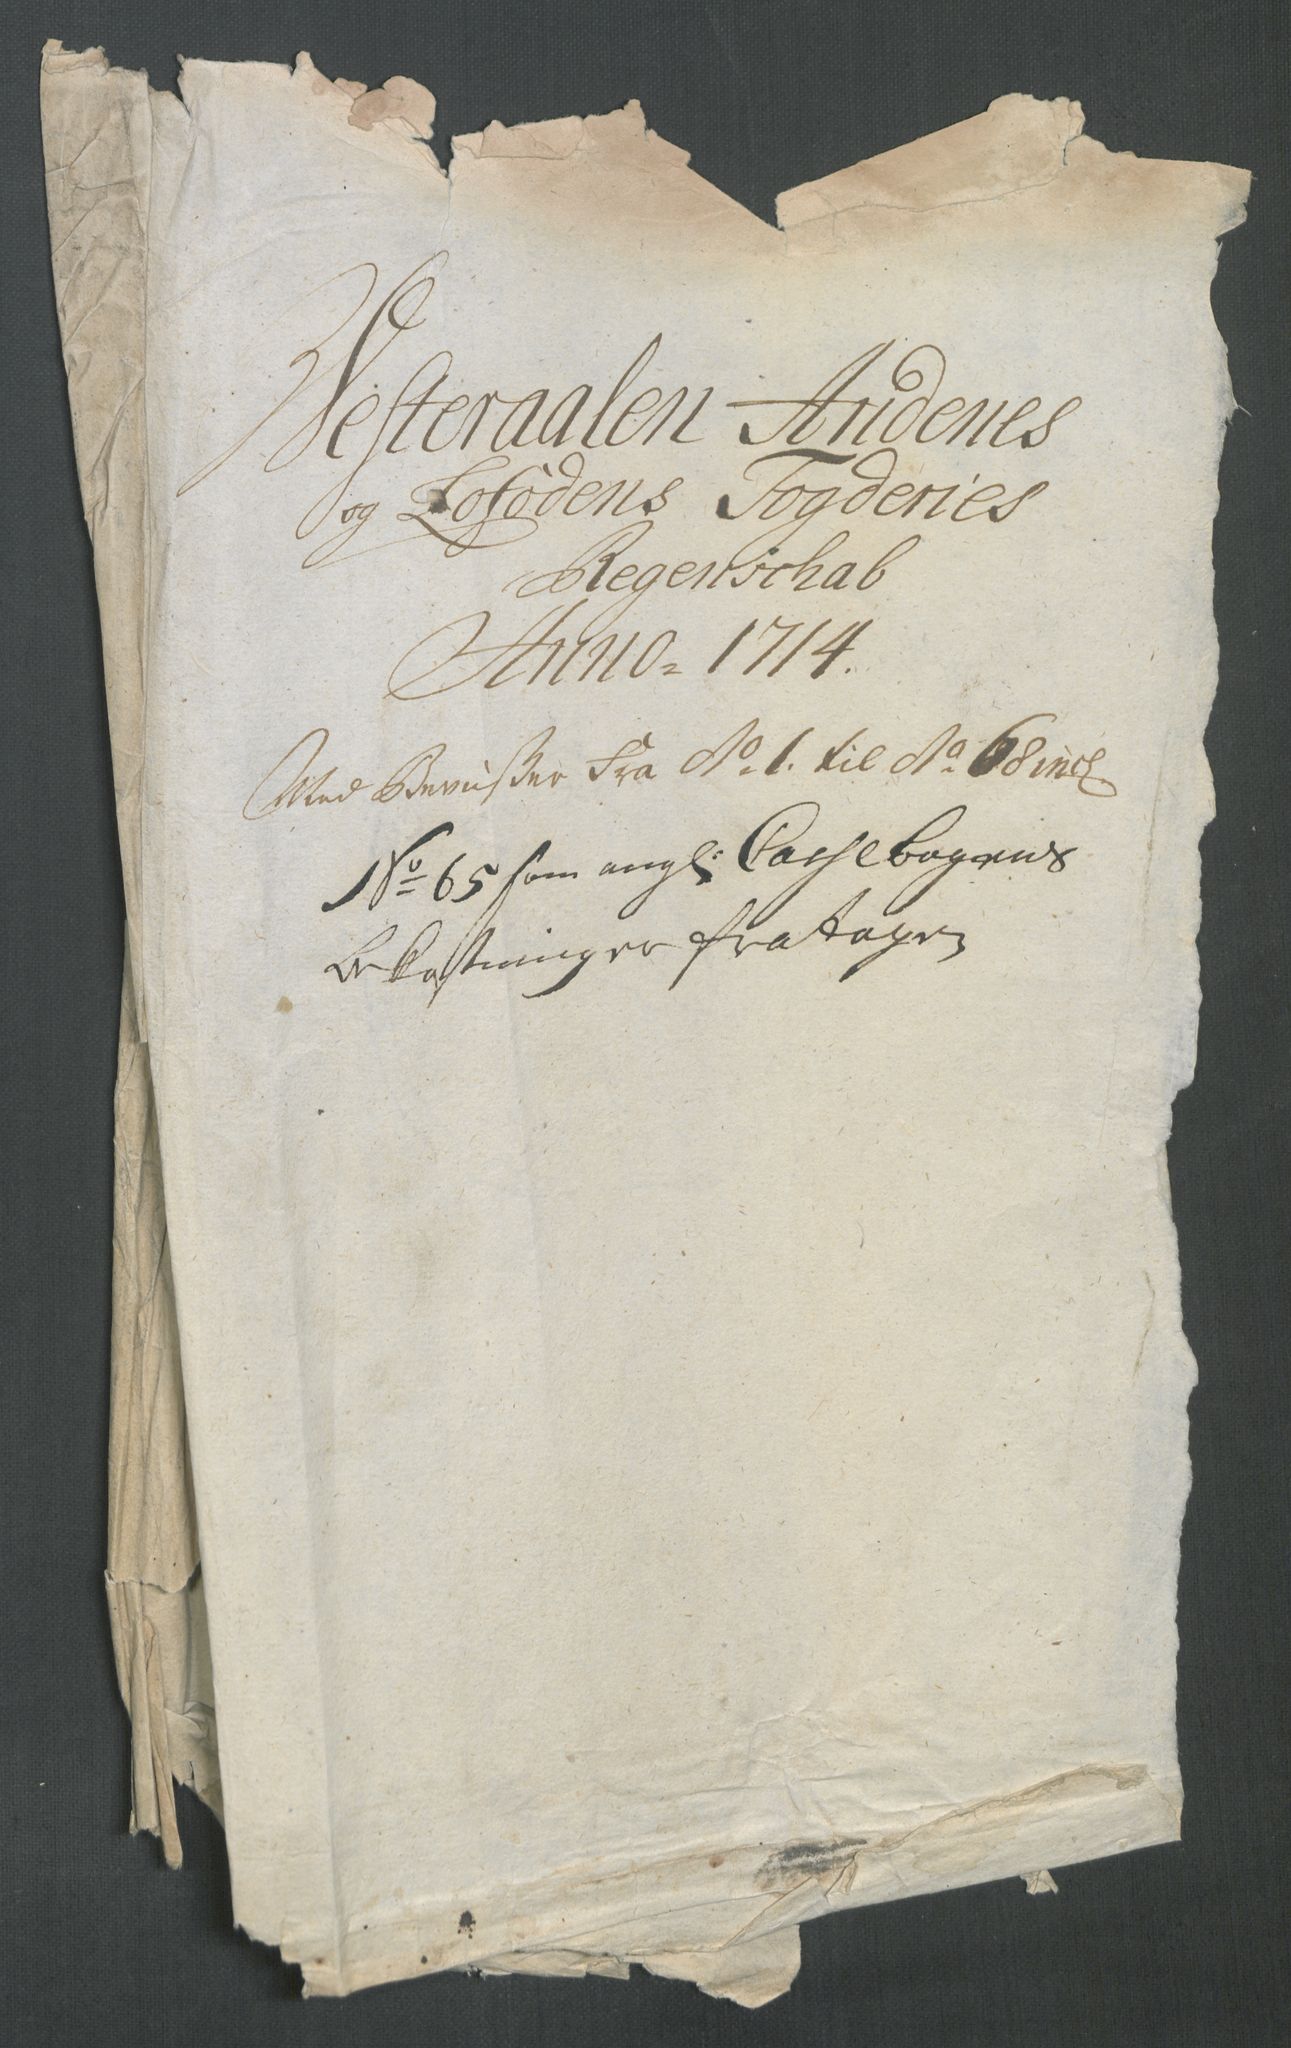 Westeraalen Andenes
og Lofodens Fogderies
Regenschab
Anno= 1714.
Med Beviißer Fra No. 1. til No. 68 incl
No 65 som angl: Casse bogens
bekostninger fratagen